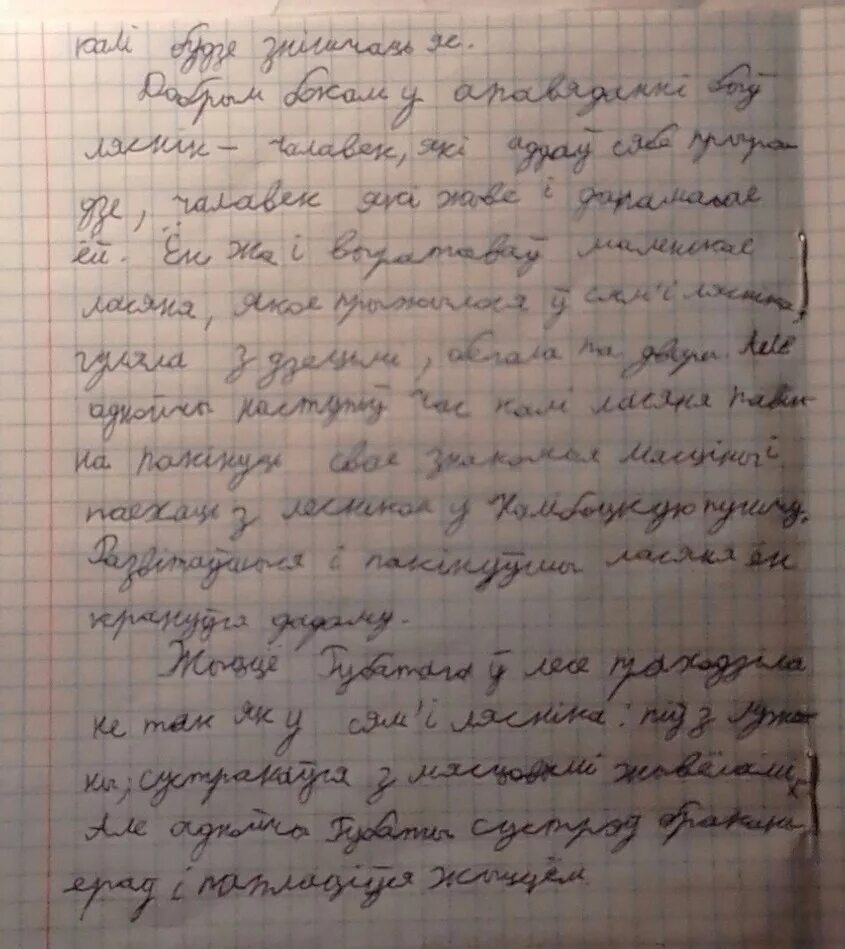 калі будзе знішчаць яе.
Добрым бокам у апавяданні быў
ляснік – чалавек, які аддаў сябе прыро-
дзе, чалавек які жыве і дапамагае
ёй. Ён жа і выратаваў маленькае
ласяня, якое прыжылося ў сям'і лясніка,
гуляла з дзецьмі, бегала па двары. Але
аднойчы наступіў час калі ласяня павін-
на пакінуць свае знаёмыя мясціны і
паехаць з лесніком у Налібоцкую пушчу.
Развітаўшыся і пакінуўшы ласяня ён
крануўся дадому.
Жыццё Губатага ў лесе праходзіла
не так як у сям'і лясніка: піў з лужы-
ны, сустракаўся з мясцовымі жывёламі.
Але аднойчы Губаты сустрэў браканье-
ераў і паплаціўся жыццём